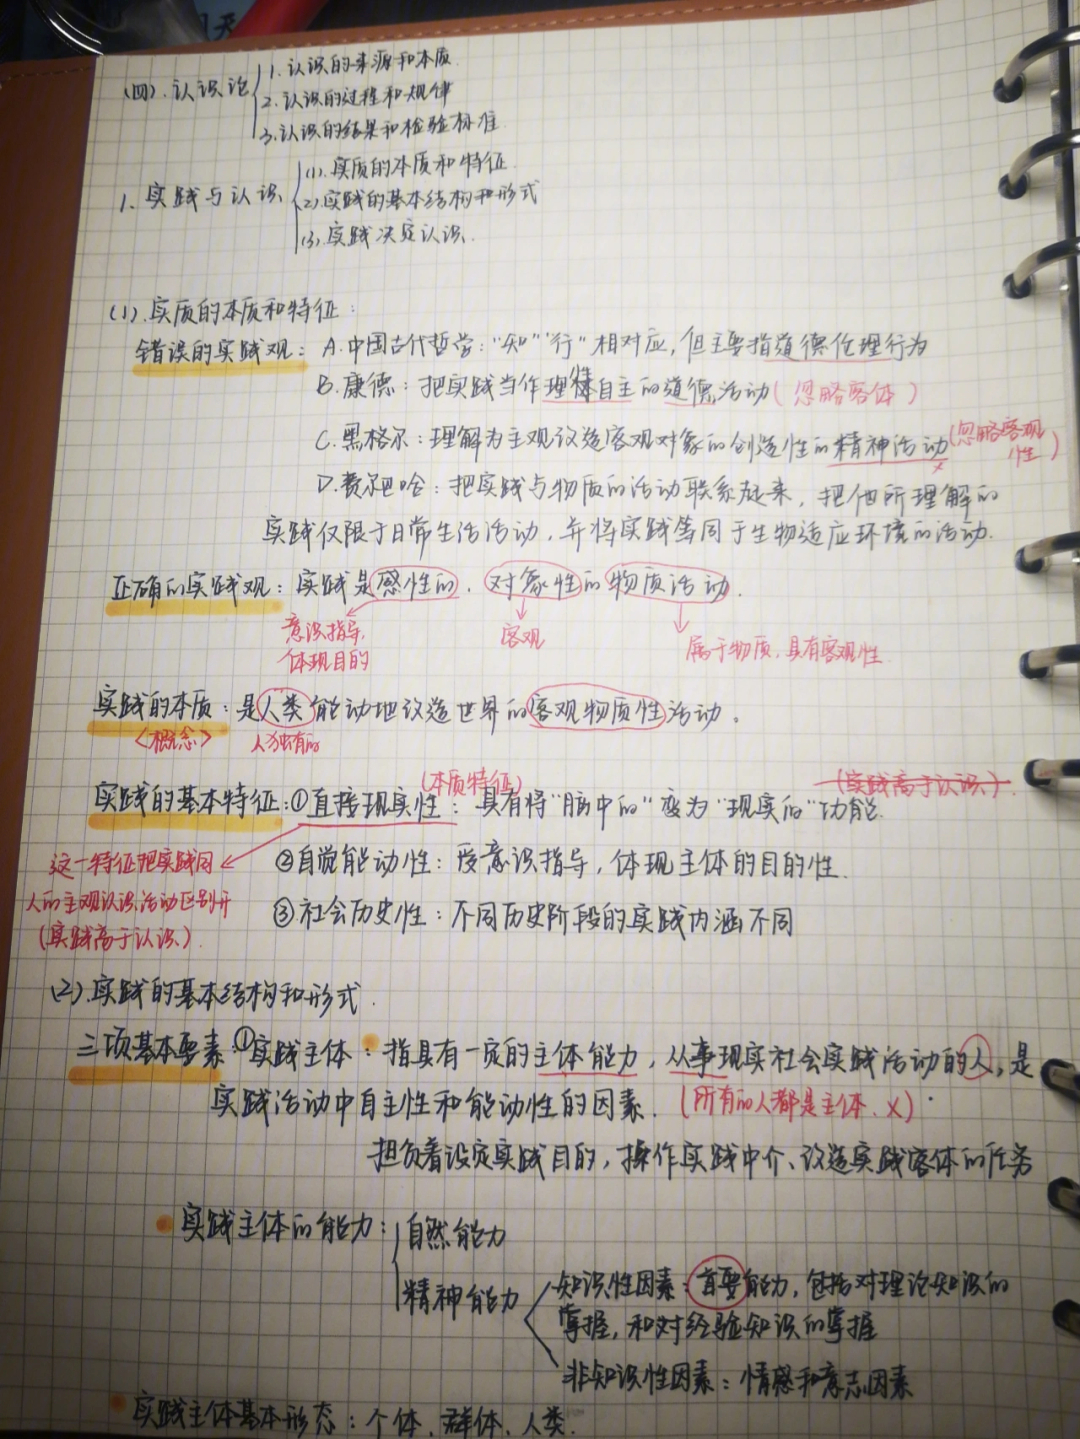 (四).认识论
1.认识的来源和本质
2.认识的过程和规律
3.认识的结果和检验标准
1.实践与认识
(1).实质的本质和特征
(2)实践的基本结构和形式
(3).实践决定认识.
(1).实质的本质和特征:
错误的实践观: A.中国古代哲学:“知”“行”相对应,但主要指道德伦理行为
B.康德:把实践当作理性自主的道德活动(忽略客体)
C.黑格尔:理解为主观改造客观对象的创造性的精神活动(忽略客观
性)
D.费尔巴哈:把实践与物质的活动联系起来,把他所理解的
实践仅限于日常生活活动,并将实践等同于生物适应环境的活动.
正确的实践观:实践是感性的.对象性的物质活动.
意识指导, 客观 属于物质,具有客观性
体现目的
实践的本质:是人类能动地改造世界的客观物质性活动。
<概念> 人独有的
(本质特征) (实践高于认识).
实践的基本特征:①直接现实性:具有将“脑中的”变为“现实的”功能.
这一特征把实践同
②自觉能动性:受意识指导,体现主体的目的性.
人的主观认识活动区别开
③社会历史性:不同历史阶段的实践内涵不同
(实践高于认识).
(2).实践的基本结构和形式.
三项基本要素:①实践主体:指具有一定的主体能力,从事现实社会实践活动的人,是
实践活动中自主性和能动性的因素.(所有的人都是主体.X)
担负着设定实践目的,操作实践中介、改造实践客体的任务
实践主体的能力: 自然能力
精神能力
知识性因素:首要能力,包括对理论知识的
掌握,和对经验知识的掌握
非知识性因素:情感和意志因素
实践主体基本形态:个体、群体、人类.